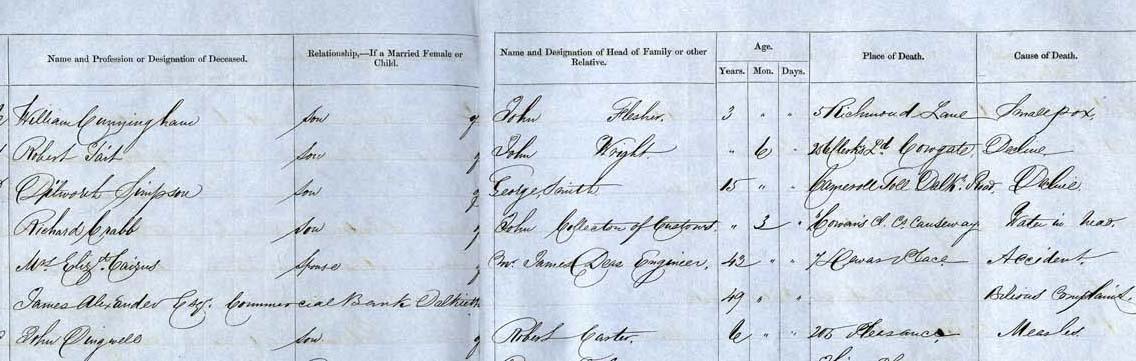 Name and Profession or Designation of Deceased. Relationship,—If a Married Female or Child. Name and Designation of Head of Family or other Relative. Age. Years. Mon. Days. Place of Death. Cause of Death.
William Cunningham son of John Flesher. 3 " " 5 Richmond Lane Small pox,
Robert Tait son of John Wright. " 6 Cowgate, Decline
Simpson son of George, Smith 15 " " Toll Dalkh. Road, Decline.
Richard Crabb son of John Collector of Customs. " 3 " Causeway Water in head.
Mrs Elizt. Cairns spouse of James Engineer. 42 " " 7 Place Accident.
James Alexander Esq. Commercial Bank Dalkeith 49 " " Bilious Complaint.
John Dingwell son of Robert Carter. 6 " " Pleasance Measles.